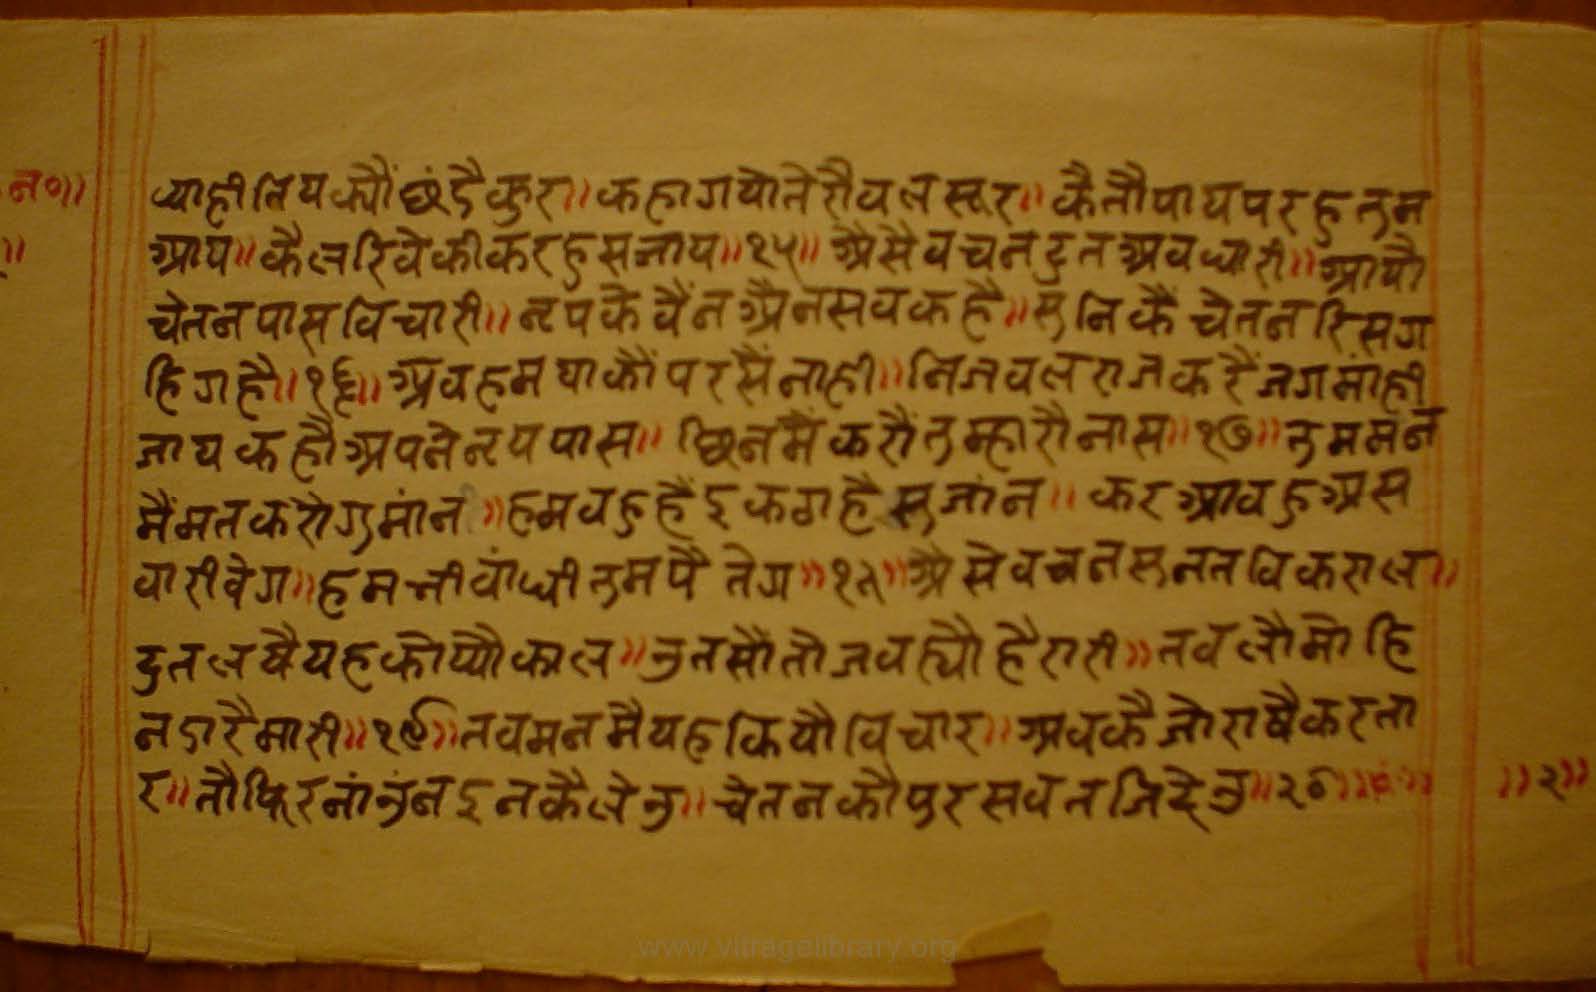 न०॥ ब्याही तिय क्यौं छंडै कुर॥ कहा गयो तेरौ वल सूर॥ कै तौ पाय परहु तुम
॥ आय॥ कै लरिवे की करहु सजाय॥१५॥ अैसै वचन दुत अवधारी॥ आयौ
चेतन पास विचारी॥ नृप के वैंन अैन सव कहै॥ सुनि कै चेतन रिस ग
हि गहै॥१६॥ अव हम याकौं परसैं नाही॥ निज वल राज करैं जग मांही
जाय कहौ अपने नृप पास॥ छिन मैं करौं तुम्हारौ नास॥१७॥ तुम मन
मैं मत करो गुमांन॥ हम वहु हैं इकठा है सुजांन॥ कर आवहु अस
वारी वेग॥ हम भी वांधी तुम पै तेग॥१८॥ अैसे वचन सुनत विकराल॥
दुत लषै यह कोप्यौ काल॥ उन सौं तो जव ह्यौ है रारी॥ तव लौ मोहि
न डारै मारी॥१९॥ तव मन मै यह कियौ विचार॥ अवकै जो राषै करता
र॥ तौ फिर नां उंन इनकै लेउ॥ चेतन कौ पुर सव तजि देउ॥२०॥ ॥२॥
www.vitragelibrary.org